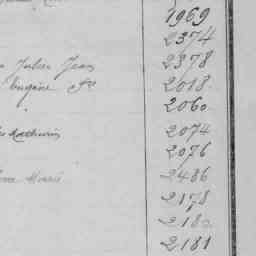 1969
2374
Julien Jean 2378
Eugène 2018
2060
Mathurin 2074
2076
2486
Marie 2178
2180
2181